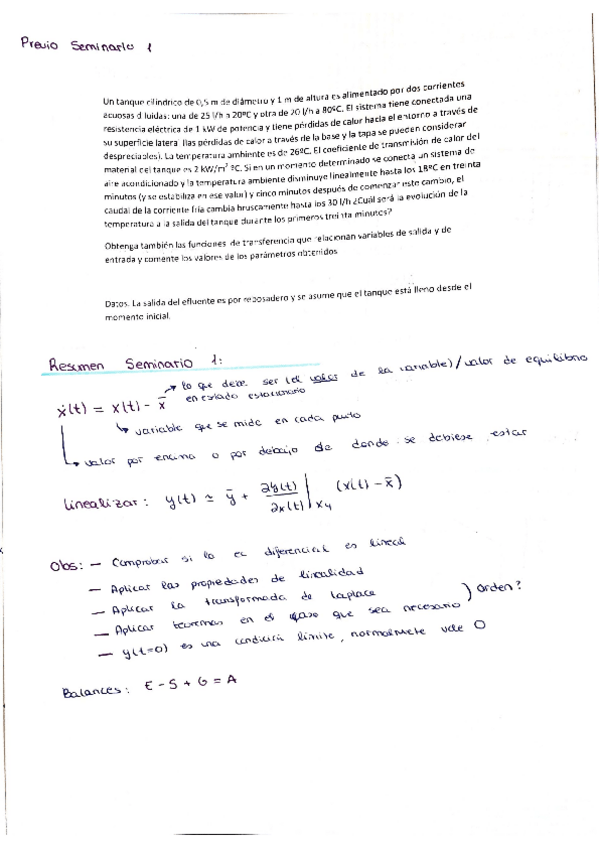 Previo Seminario 1
Un tanque cilíndrico de 0,5 m de diámetro y 1 m de altura es alimentado por dos corrientes
acuosas diluidas: una de 25 l/h a 20ºC y otra de 20 l/h a 80ºC. El sistema tiene conectada una
resistencia eléctrica de 1 kW de potencia y tiene pérdidas de calor hacia el entorno a través de
su superficie lateral (las pérdidas de calor a través de la base y la tapa se pueden considerar
despreciables). La temperatura ambiente es de 26ºC. El coeficiente de transmisión de calor del
material del tanque es 2 kW/m² ºC. Si en un momento determinado se conecta un sistema de
aire acondicionado y la temperatura ambiente disminuye linealmente hasta los 18ºC en treinta
minutos (y se estabiliza en ese valor) y cinco minutos después de comenzar este cambio, el
caudal de la corriente fría cambia bruscamente hasta los 30 l/h ¿Cuál será la evolución de la
temperatura a la salida del tanque durante los primeros treinta minutos?
Obtenga también las funciones de transferencia que relacionan variables de salida y de
entrada y comente los valores de los parámetros obtenidos
Datos. La salida del efluente es por rebosadero y se asume que el tanque está lleno desde el
momento inicial.
Resumen Seminario 1:
lo que debe ser (el valor de la variable)/valor de equilibrio
en estado estacionario
ẋ(t) = x(t) - x̄
variable que se mide en cada punto
valor por encima o por debajo de donde se debiese estar
Linealizar: y(t) ≃ ȳ + ∂y(t)/∂x(t) | (x(t) - x̄)
Obs: - Comprobar si la ec diferencial es lineal
- Aplicar las propiedades de linealidad
- Aplicar la transformada de Laplace
- Aplicar teoremas en el caso que sea necesario ) Orden?
- y(t=0) es una condición límite, normalmente vale 0
Balances: E - S + G = A